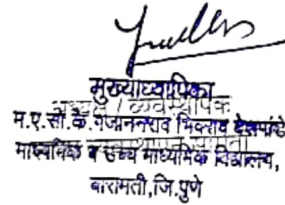 मुख्याध्यापिका
म.ए.सो.के. गजाननराव भिवराव देशपांडे
माध्यमिक व उच्च माध्यमिक विद्यालय,
बारामती, जि. पुणे